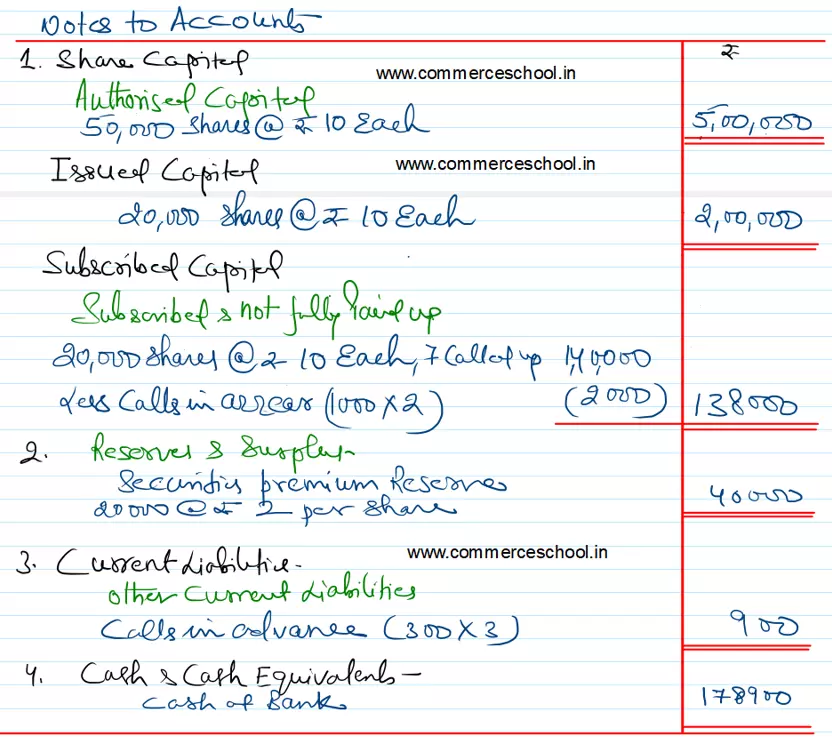 Notes to Accounts
₹
1. Share Capital
www.commerceschool.in
Authorised Capital
50,000 Shares @ ₹ 10 Each 5,00,000
Issued Capital www.commerceschool.in
20,000 Shares @ ₹ 10 Each 2,00,000
Subscribed Capital
Subscribed & not fully Paid up
20,000 Shares @ ₹ 10 Each, 7 Called up 1,40,000
Less Calls in arrear (1000 X 2) (2000) 138000
2. Reserves & Surplus-
Securities premium Reserve
20000 @ ₹ 2 per Share 40000
3. Current Liabilities- www.commerceschool.in
Other Current Liabilities
Calls in advance (300 X 3) 900
4. Cash & Cash Equivalents-
Cash at Bank 178900